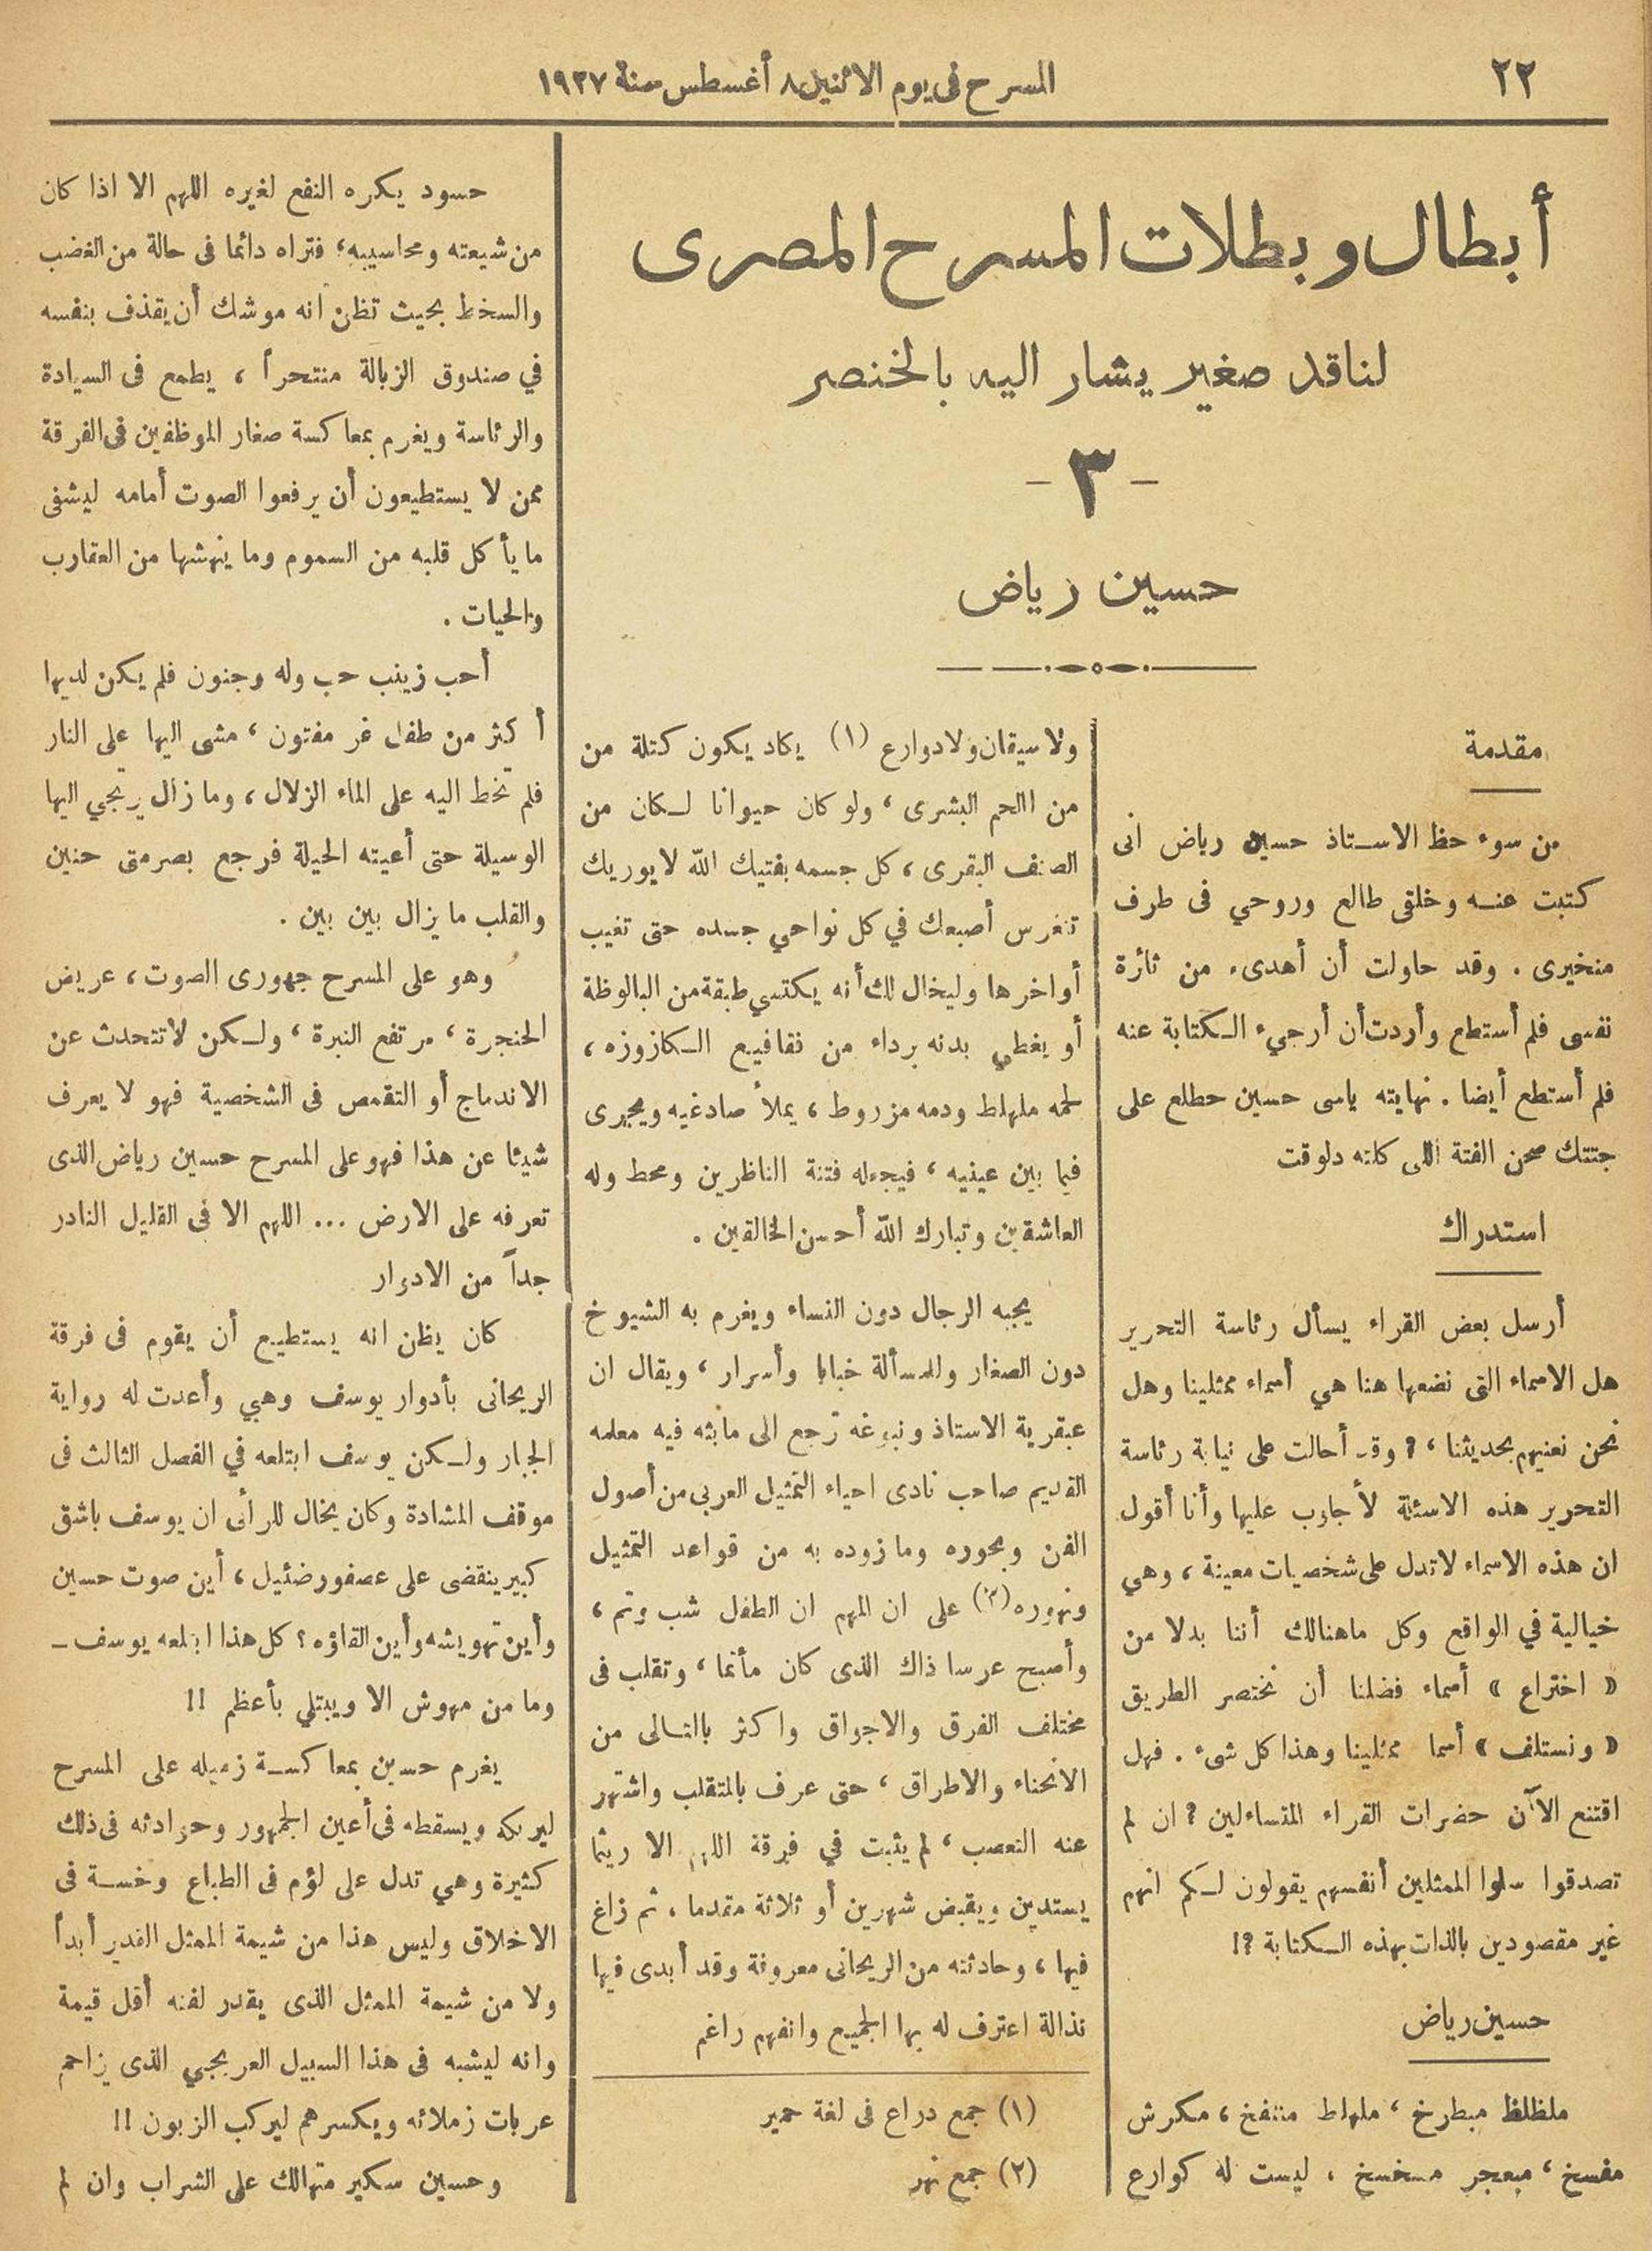 ٢٢
المسرح فى يوم الاثنين ٨ أغسطس سنة ١٩٢٧
أبطال وبطلات المسرح المصرى
لناقد صغير يشار اليه بالخنصر
- ٣ -
حسين رياض
مقدمة
من سوء حظ الاستاذ حسين رياض انى
كتبت عنه وخلقى طالع وروحي فى طرف
منخيرى . وقد حاولت أن أهدىء من ثائرة
نفسى فلم أستطع وأردت أن أرجيء الكتابة عنه
فلم أستطع أيضا . نهايته ياسى حسين حطلع على
جتتك صحن الفتة اللى كلته دلوقت
استدراك
أرسل بعض القراء يسأل رئاسة التحرير
هل الاسماء التى نضعها هنا هي أسماء ممثلينا وهل
نحن نعنيهم بحديثنا ، ؟ وقد أحالت على نيابة رئاسة
التحرير هذه الاسئلة لأجاوب عليها وأنا أقول
ان هذه الاسماء لاتدل على شخصيات معينة ، وهي
خيالية في الواقع وكل ماهنالك أننا بدلا من
« اختراع » أسماء فضلنا أن نختصر الطريق
« ونستلف » أسما ممثلينا وهذا كل شىء . فهل
اقتنع الآن حضرات القراء المتساءلين ? ان لم
تصدقوا سلوا الممثلين أنفسهم يقولون لكم انهم
غير مقصودين بالذات بهذه الكتابة ?!
حسين رياض
ملظلظ مبطرخ ، ملهلط منتفخ ، مكرش
مفسخ ، مبعجر مسخسخ ، ليست له كوارع
ولا سيقان ولا دوارع (١) يكاد يكون كتلة من
من االحم البشرى ، ولو كان حيوانا لكان من
الصنف البقرى ، كل جسمه بفتيك الله لا يوريك
تنغرس أصبعك في كل نواحي جسده حتى تغيب
أواخرها وليخال لك أنه يكتسي طبقة من البالوظة
أو يغطي بدنه برداء من نقافيع الكازوزه ،
لحمه ملهلط ودمه مزروط ، يملأ صادغيه ويجرى
فيما بين عينيه ، فيجعله فتنة الناظرين ومحط وله
العاشقين وتبارك الله أحسن الخالقين .
يحبه الرجال دون النساء ويغرم به الشيوخ
دون الصغار وللمسألة خبايا وأسرار ، ويقال ان
عبقرية الاستاذ ونبوغه ترجع الى مابثه فيه معلمه
القديم صاحب نادى احياء التمثيل العربى من أصول
الفن وبحوره وما زوده به من قواعد التمثيل
ونهوره (٢) على ان المهم ان الطفل شب وتم ،
وأصبح عرسا ذاك الذى كان مأتما ، وتقلب فى
مختلف الفرق والاجواق واكثر بالتالى من
الانحناء والاطراق ، حتى عرف بالمتقلب واشتهر
عنه التعصب ، لم يثبت في فرقة اللهم الا ريثما
يستدين ويقبض شهرين أو ثلاثة متقدما ، ثم زاغ
فيها ، وحادثته من الريحانى معروفة وقد أبدى فيها
نذالة اعترف له بها الجميع وانفهم راغم
(١) جمع دراع فى لغة حمير
(٢) جمع نهر
حسود يكره النفع لغيره اللهم الا اذا كان
من شيعته ومحاسيبه ؛ فتراه دائما فى حالة من الغضب
والسخط بحيث تظن انه موشك أن يقذف بنفسه
في صندوق الزبالة منتحراً ، يطمع فى السيادة
والرئاسة ويغرم بمعاكسة صغار الموظفين فى الفرقة
ممن لا يستطيعون أن يرفعوا الصوت أمامه ليشفى
ما يأكل قلبه من السموم وما ينهشها من العقارب
والحيات .
أحب زينب حب وله وجنون فلم يكن لديها
أكثر من طفل غر مفتون ، مشى اليها على النار
فلم تخط اليه على الماء الزلال ، وما زال يرتجي اليها
الوسيلة حتى أعيته الحيلة فرجع بصرمتى حنين
والقلب ما يزال بين بين .
وهو على المسرح جهورى الصوت ، عريض
الحنجرة ، مرتفع النبرة ، ولكن لاتتحدث عن
الاندماج أو التقمص فى الشخصية فهو لا يعرف
شيئا عن هذا فهو على المسرح حسين رياض الذى
تعرفه على الارض ... اللهم الا فى القليل النادر
جداً من الادوار
كان يظن انه يستطيع أن يقوم فى فرقة
الريحانى بأدوار يوسف وهبي وأعدت له رواية
الجبار ولكن يوسف ابتلعه في الفصل الثالث فى
موقف المشادة وكان يخال للرأى ان يوسف باشق
كبير ينقضى على عصفور ضئيل ، أين صوت حسين
وأين تهويشه وأين القاؤه ؟ كل هذا ابتلعه يوسف -
وما من مهوش الا ويبتلي بأعظم !!
يغرم حسين بمعاكسة زميله على المسرح
ليربكه ويسقطه فى أعين الجمهور وحوادثه فى ذلك
كثيرة وهي تدل على لؤم فى الطباع وخسة فى
الاخلاق وليس هذا من شيمة الممثل القدير أبداً
ولا من شيمة الممثل الذى يقدر لفنه أقل قيمة
وانه ليشبه فى هذا السبيل العربجي الذى يزاحم
عربات زملائه ويكسرهم ليركب الزبون !!
وحسين سكير متهالك على الشراب وان لم